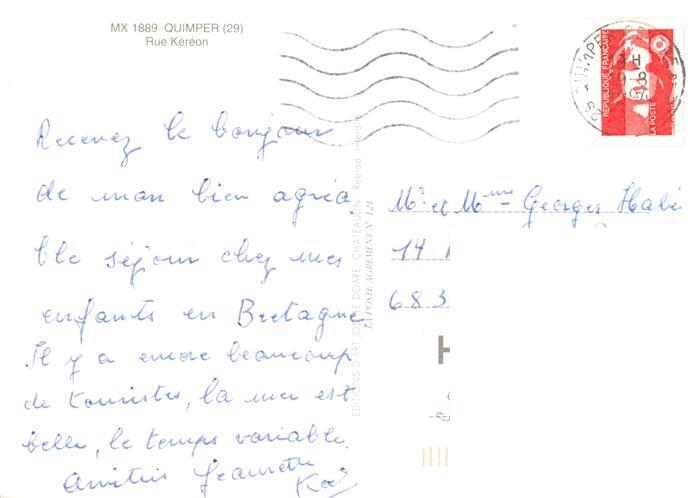 MX 1889 QUIMPER (29)
Rue Kéréon
Recevez le bonjour
de mon bien agréa
ble séjour chez mes
enfants en Bretagne
Il y a encore beaucoup
de touristes, la mer est
belle, le temps variable.
Amitiés Jeannette
EDITIONS D'ART JOS LE DOARE, CHATEAULIN Reprod. interdite
LA POSTE AGREMENT N° 121
Mr et Mme Georges
14
683
REPUBLIQUE FRANÇAISE
LA POSTE